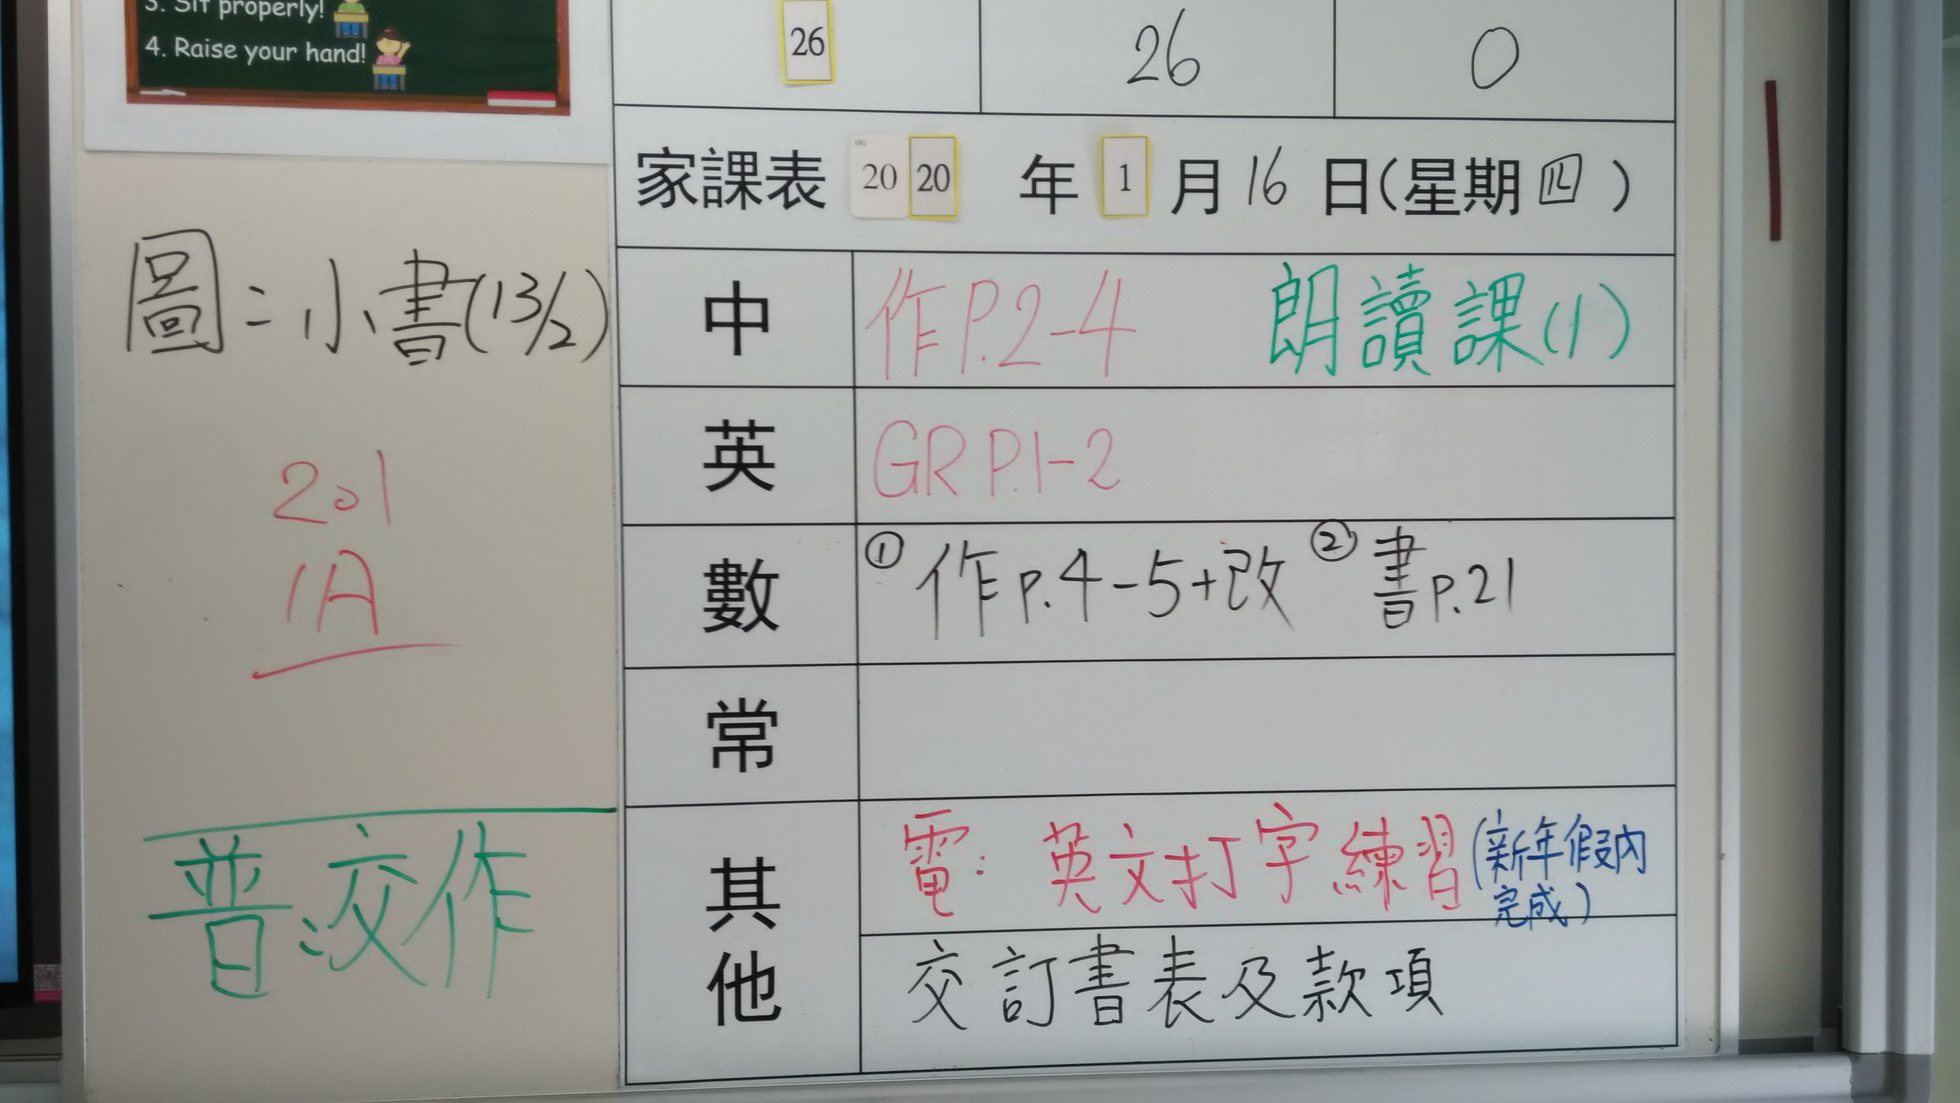 3. Sit properly!
4. Raise your hand!
26 26 0
家課表 20 20 年 1 月 16 日(星期四)
圖:小書(13/2)
中 作P.2-4 朗讀課(1)
英 GR P.1-2
201
1A
數 ①作p.4-5+改 ②書p.21
常
普:交作
其他
電:英文打字練習(新年假內完成)
交訂書表及款項